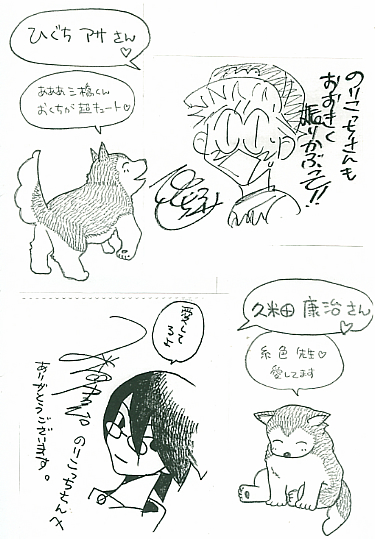 ひぐち アサ さん♡
あああ三橋くん
おくちが超キュート♡
のりこっちさんも
おおきく
振りかぶって!!
久米田 康治さん♡
糸色 先生♡
愛してます
愛して
るよ
のりこっちさんへ
ありがとうございます。